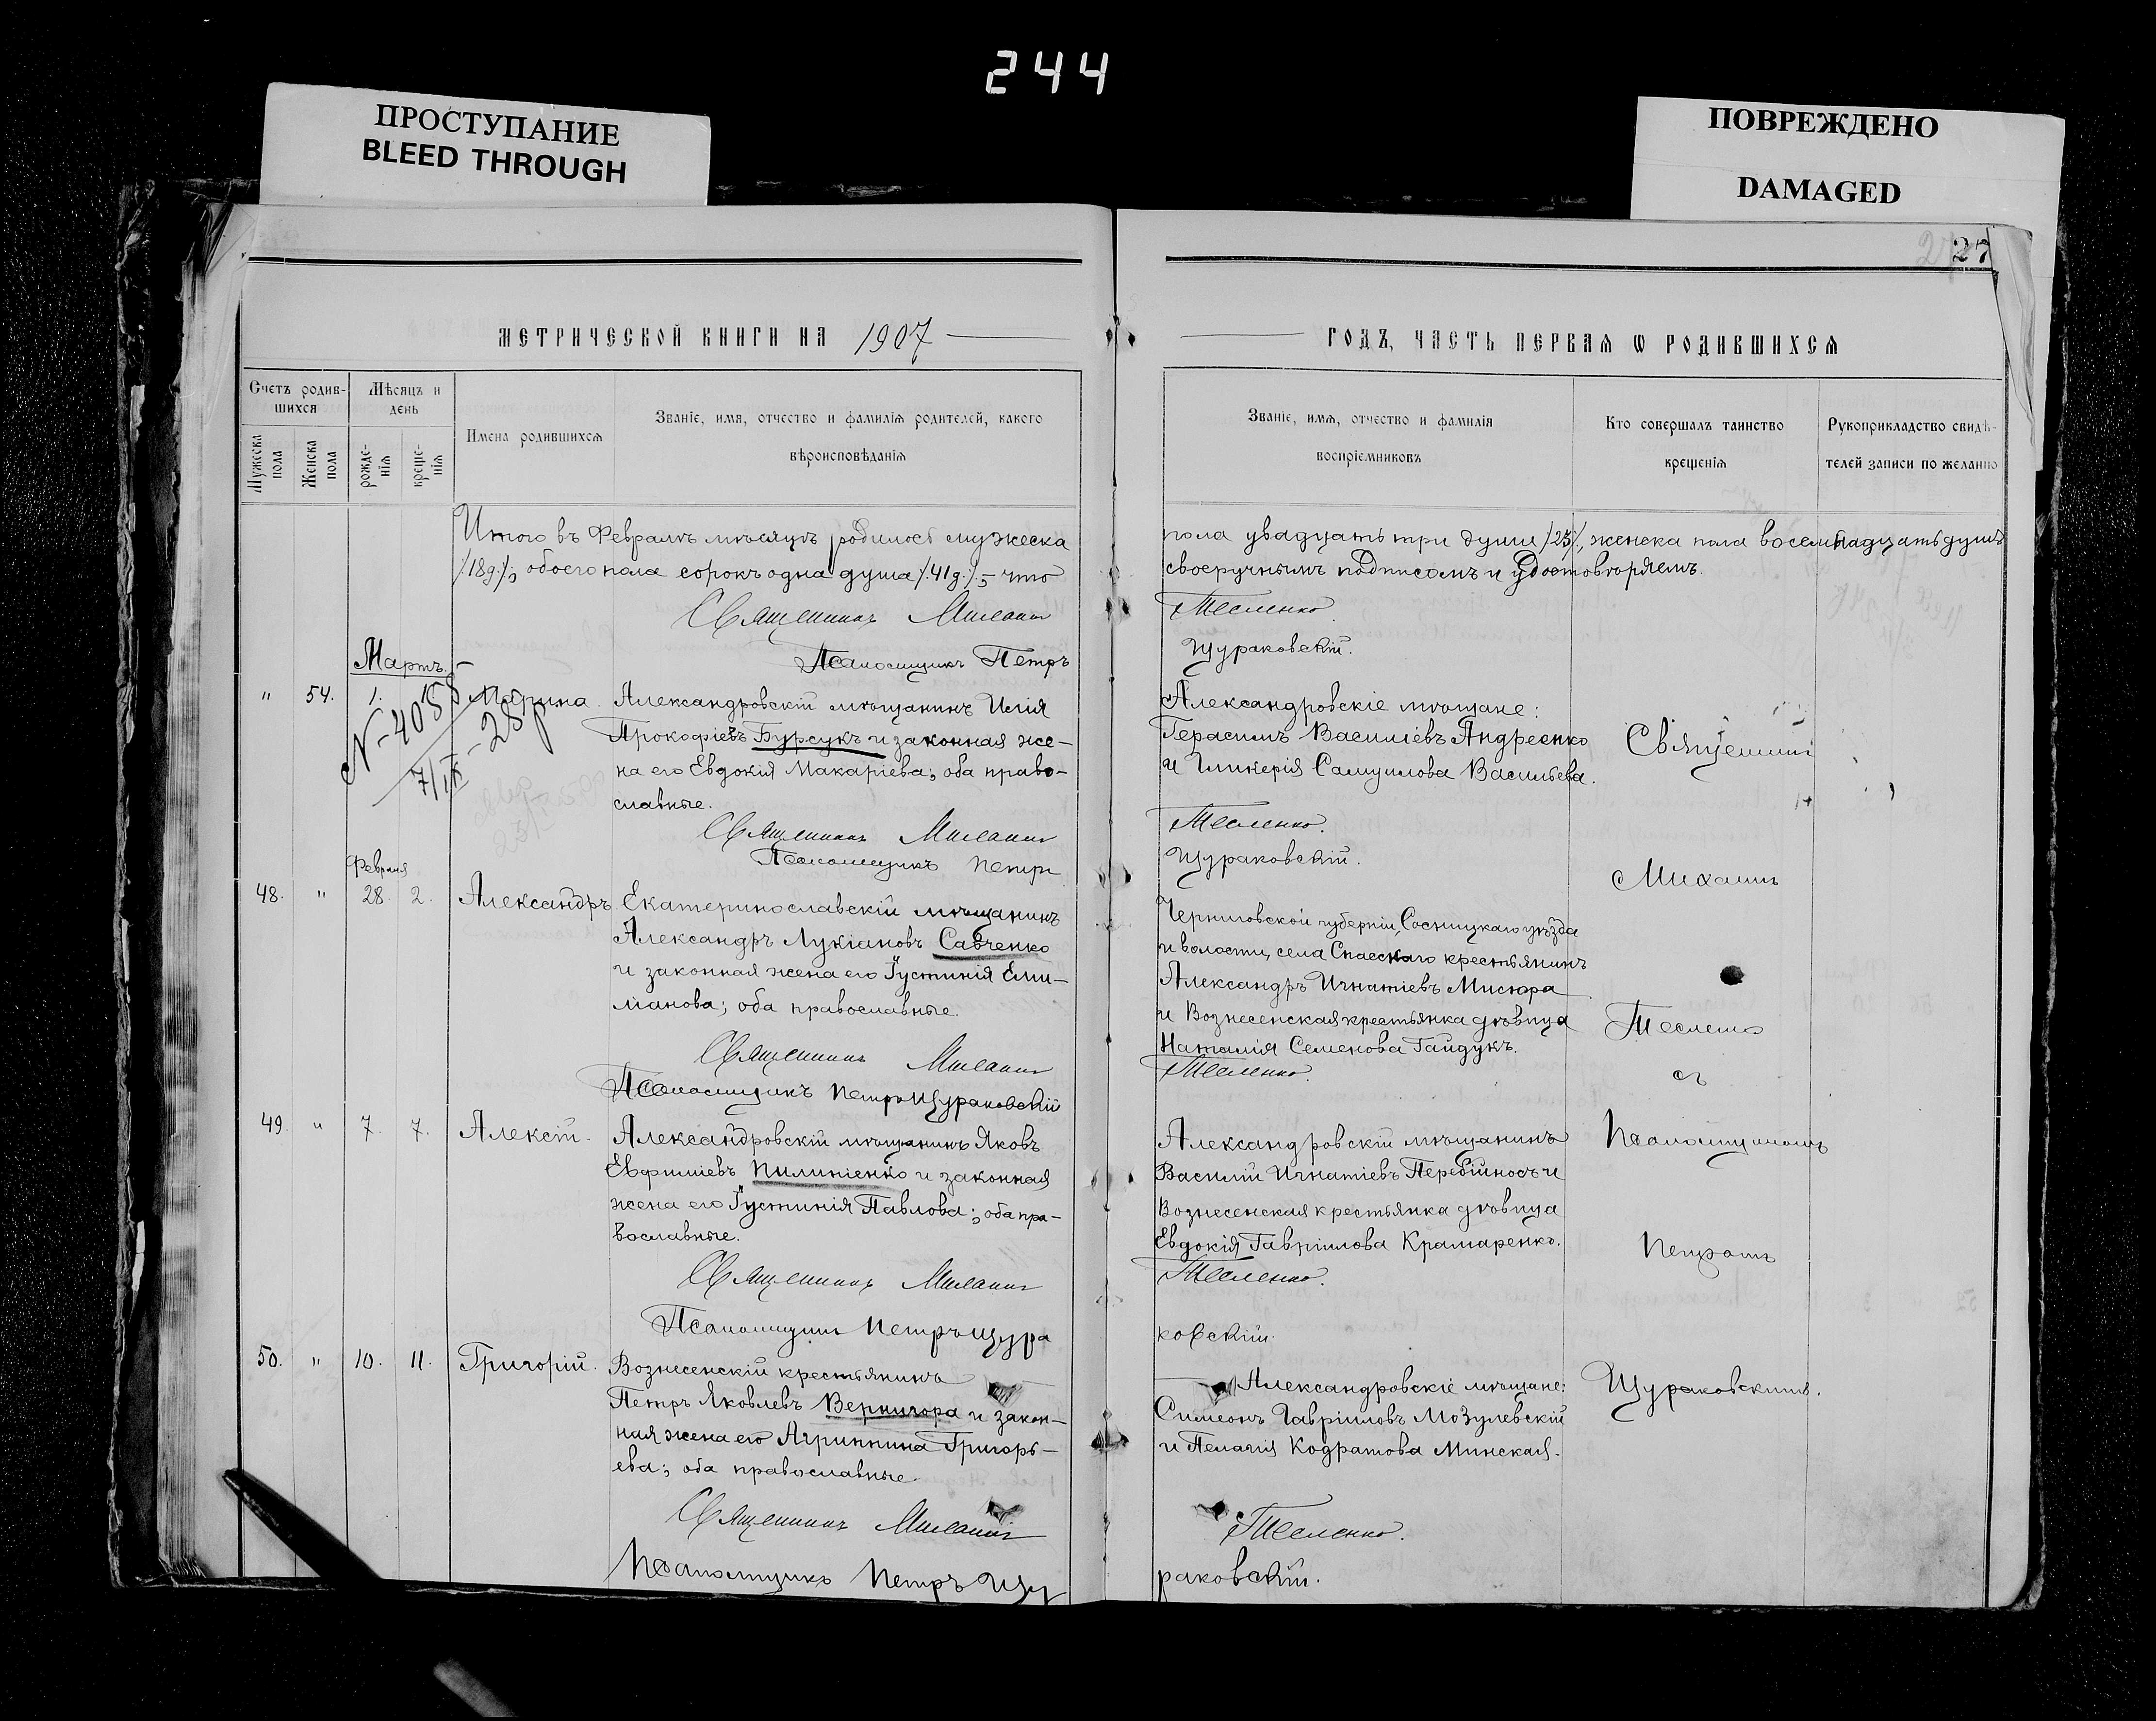 244
ПРОСТУПАНИЕ
BLEED THROUGH
ПОВРЕЖДЕНО
DAMAGED
27
МЕТРИЧЕСКОЙ КНИГИ НА 1907
ГОДЪ, ЧАСТЬ ПЕРВАЯ Ѡ РОДИВШИХСЯ
Счетъ родив-
шихся
Мужеска пола
Женска пола
Мѣсяцъ и
день
рожде-
нія
креще-
нія
Имена родившихся
Званіе, имя, отчество и фамилія родителей, какого
вѣроисповѣданія
Званіе, имя, отчество и фамилія
воспріемниковъ
Кто совершалъ таинство
крещенія
Рукоприкладство свидѣ-
телей записи по желанію
Итого въ Февралѣ мѣсяцѣ родилось мужеска
пола двадцать три души /23/, женска пола восемнадцать душъ
/18д./; обоего пола сорокъ одна душа /41д./ - что
своеручнымъ подписомъ и удостовѣряемъ.
Священникъ Михаилъ
Тесленко.
Псаломщикъ Петръ
Щураковскій.
Мартъ.
" 54. 1. Марина.
N-4058
7/IX-28
Александровскій мѣщанинъ Илія
Прокофіевъ Бурсукъ и законная же-
на его Евдокія Макаріева; оба право-
славные.
Александровскіе мѣщане:
Герасимъ Василіевъ Андреенко
и Гликерія Самуилова Васильева.
Священникъ Михаилъ
Тесленко.
Псаломщикъ Петръ
Щураковскій.
Февраля
48. " 28. 2. Александръ.
Екатеринославскій мѣщанинъ
Александръ Лукіановъ Савченко
и законная жена его Іустинія Еми-
ліанова; оба православные.
Черниговской губерніи, Сосницкаго уѣзда
и волости, села Спасскаго крестьянинъ
Александръ Игнатіевъ Мисюра
и Вознесенская крестьянка дѣвица
Наталія Семенова Гайдукъ.
Священникъ Михаилъ
Тесленко.
Псаломщикъ Петръ Щураковскій
49. " 7. 7. Алексій.
Александровскій мѣщанинъ Яковъ
Евфиміевъ Пилипіенко и законная
жена его Іустинія Павлова; оба пра-
вославные.
Александровскій мѣщанинъ
Василій Игнатіевъ Перебійносъ и
Вознесенская крестьянка дѣвица
Евдокія Гавріилова Крамаренко.
Священникъ Михаилъ
Тесленко.
Псаломщикъ Петръ Щура
ковскій.
50. " 10. 11. Григорій.
Вознесенскій крестьянинъ
Петръ Яковлевъ Вернигора и закон-
ная жена его Агриппина Григорь-
ева; оба православные.
Александровскіе мѣщане:
Симеонъ Гавріиловъ Мозулевскій
и Пелагія Кодратова Минская.
Священникъ Михаилъ
Тесленко.
Псаломщикъ Петръ Щу
раковскій.
Священникъ
Михаилъ
Тесленко
съ
Псаломщикомъ
Петромъ
Щураковскимъ.